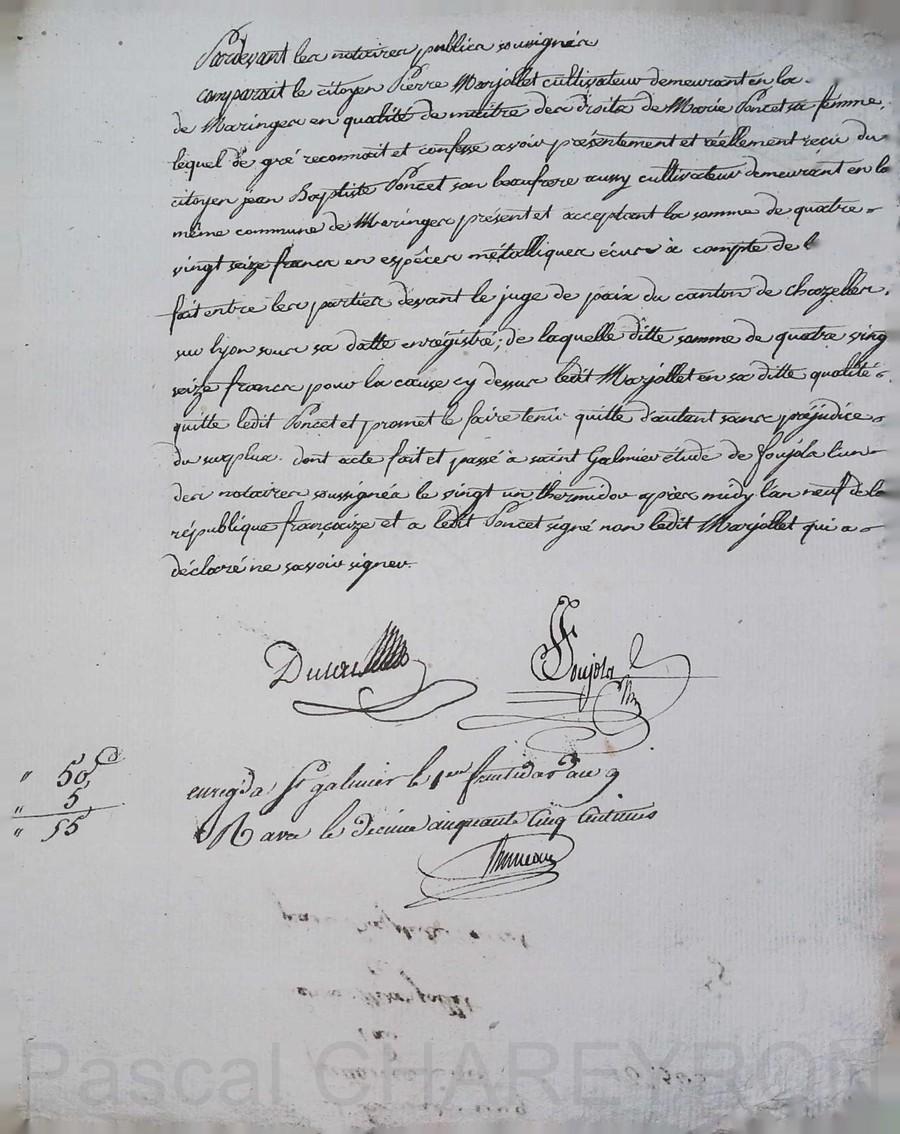 Pardevant les notaires publics soussignés
comparait le citoyen Pierre Marjollet cultivateur demeurant en la
de Maringes en qualité de maître des droits de Marie Poncet sa femme,
lequel de gré reconnoit et confesse avoir présentement et réellement reçu du
citoyen jean Baptiste Poncet son beaufrere aussy cultivateur demeurant en la
même commune de Maringes présent et acceptant la somme de quatre
vingt seize francs en espêces métalliques écus à compte de l
fait entre les parties devant le juge de paix du canton de chazelles
sur lyon sous sa datte enrégistré; de laquelle ditte somme de quatre vingt
seize francs pour la cause cy dessus ledit Marjollet en sa ditte qualité
quitte ledit Poncet et promet le faire tenir quitte d'autant sans préjudice
du surplus. dont acte fait et passé à saint Galmier étude de foujols l'un
des notaires soussignés le vingt un thermidor après midy l'an neuf de la
république françoize et a ledit Poncet signé non ledit Marjollet qui a
déclaré ne savoir signer.
Foujols
" 50 c
" 5
" 55
enreg. à St galmier le 1er fructidor an 9
R avec le décime cinquante cinq centimes
Pascal CHAREYRON